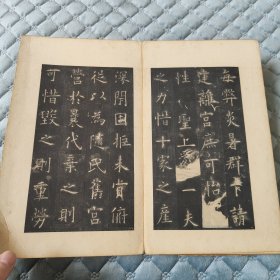 每弊炎暑群下請
建離宮庶可怡
性聖上一夫
之力惜十家之產
深閉固拒未肯俯
從以為隨氏舊宮
營於曩代棄之則
可惜毀之則重勞